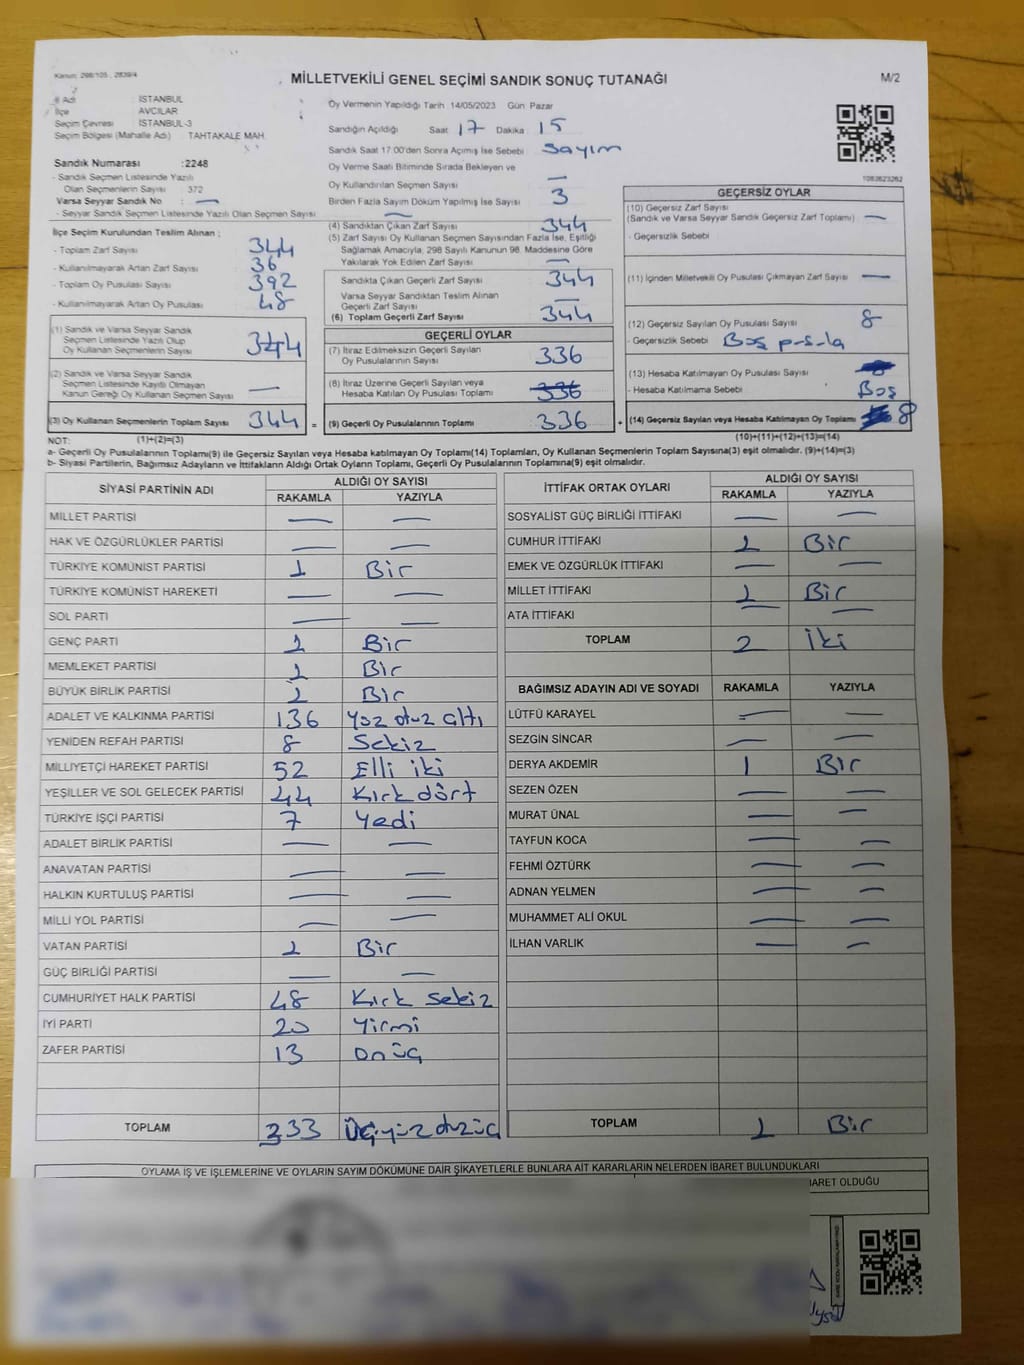 Kanun: 298/105 , 2839/4
MİLLETVEKİLİ GENEL SEÇİMİ SANDIK SONUÇ TUTANAĞI
M/2
İl Adı : İSTANBUL
İlçe : AVCILAR
Seçim Çevresi : İSTANBUL-3
Seçim Bölgesi (Mahalle Adı) : TAHTAKALE MAH.
Sandık Numarası :2248
- Sandık Seçmen Listesinde Yazılı
Olan Seçmenlerin Sayısı : 372
Varsa Seyyar Sandık No : —
- Seyyar Sandık Seçmen Listesinde Yazılı Olan Seçmen Sayısı : —
İlçe Seçim Kurulundan Teslim Alınan ;
- Toplam Zarf Sayısı : 344
- Kullanılmayarak Artan Zarf Sayısı : 36
- Toplam Oy Pusulası Sayısı : 392
- Kullanılmayarak Artan Oy Pusulası : 48
(1) Sandık ve Varsa Seyyar Sandık
Seçmen Listesinde Yazılı Olup
Oy Kullanan Seçmenlerin Sayısı : 344
(2) Sandık ve Varsa Seyyar Sandık
Seçmen Listesinde Kayıtlı Olmayan
Kanun Gereği Oy Kullanan Seçmen Sayısı : —
(3) Oy Kullanan Seçmenlerin Toplam Sayısı : 344 =
Oy Vermenin Yapıldığı Tarih 14/05/2023 Gün Pazar
Sandığın Açıldığı Saat 17 Dakika 15
Sandık Saat 17:00'den Sonra Açımış İse Sebebi : Sayım
Oy Verme Saati Bitiminde Sırada Bekleyen ve
Oy Kullandırılan Seçmen Sayısı : —
Birden Fazla Sayım Döküm Yapılmış İse Sayısı : 3
(4) Sandıktan Çıkan Zarf Sayısı : 344
(5) Zarf Sayısı Oy Kullanan Seçmen Sayısından Fazla İse, Eşitliği
Sağlamak Amacıyla, 298 Sayılı Kanunun 98. Maddesine Göre
Yakılarak Yok Edilen Zarf Sayısı : —
Sandıkta Çıkan Geçerli Zarf Sayısı : 344
Varsa Seyyar Sandıktan Teslim Alınan
Geçerli Zarf Sayısı : —
(6) Toplam Geçerli Zarf Sayısı : 344
GEÇERLİ OYLAR
(7) İtiraz Edilmeksizin Geçerli Sayılan
Oy Pusulalarının Sayısı : 336
(8) İtiraz Üzerine Geçerli Sayılan veya
Hesaba Katılan Oy Pusulası Toplamı : 336
(9) Geçerli Oy Pusulalarının Toplamı : 336 +
1083623262
GEÇERSİZ OYLAR
(10) Geçersiz Zarf Sayısı
(Sandık ve Varsa Seyyar Sandık Geçersiz Zarf Toplamı) : —
- Geçersizlik Sebebi :
(11) İçinden Milletvekili Oy Pusulası Çıkmayan Zarf Sayısı : —
(12) Geçersiz Sayılan Oy Pusulası Sayısı : 8
- Geçersizlik Sebebi : Boş pusula
(13) Hesaba Katılmayan Oy Pusulası Sayısı :
- Hesaba Katılmama Sebebi : Boş
(14) Geçersiz Sayılan veya Hesaba Katılmayan Oy Toplamı : 8
NOT: (1)+(2)=(3) (10)+(11)+(12)+(13)=(14)
a- Geçerli Oy Pusulalarının Toplamı(9) ile Geçersiz Sayılan veya Hesaba katılmayan Oy Toplamı(14) Toplamları, Oy Kullanan Seçmenlerin Toplam Sayısına(3) eşit olmalıdır. (9)+(14)=(3)
b- Siyasi Partilerin, Bağımsız Adayların ve İttifakların Aldığı Ortak Oyların Toplamı, Geçerli Oy Pusulalarının Toplamına(9) eşit olmalıdır.
SİYASİ PARTİNİN ADI ALDIĞI OY SAYISI
RAKAMLA YAZIYLA
MİLLET PARTİSİ — —
HAK VE ÖZGÜRLÜKLER PARTİSİ — —
TÜRKİYE KOMÜNİST PARTİSİ 1 Bir
TÜRKİYE KOMÜNİST HAREKETİ — —
SOL PARTİ — —
GENÇ PARTİ 1 Bir
MEMLEKET PARTİSİ 1 Bir
BÜYÜK BİRLİK PARTİSİ 1 Bir
ADALET VE KALKINMA PARTİSİ 136 Yüz otuz altı
YENİDEN REFAH PARTİSİ 8 Sekiz
MİLLİYETÇİ HAREKET PARTİSİ 52 Elli iki
YEŞİLLER VE SOL GELECEK PARTİSİ 44 Kırk dört
TÜRKİYE İŞÇİ PARTİSİ 7 Yedi
ADALET BİRLİK PARTİSİ — —
ANAVATAN PARTİSİ — —
HALKIN KURTULUŞ PARTİSİ — —
MİLLİ YOL PARTİSİ — —
VATAN PARTİSİ 1 Bir
GÜÇ BİRLİĞİ PARTİSİ — —
CUMHURİYET HALK PARTİSİ 48 Kırk sekiz
İYİ PARTİ 20 Yirmi
ZAFER PARTİSİ 13 onüç
TOPLAM 333 Üçyüzotuzüç
İTTİFAK ORTAK OYLARI ALDIĞI OY SAYISI
RAKAMLA YAZIYLA
SOSYALİST GÜÇ BİRLİĞİ İTTİFAKI — —
CUMHUR İTTİFAKI 1 Bir
EMEK VE ÖZGÜRLÜK İTTİFAKI — —
MİLLET İTTİFAKI 1 Bir
ATA İTTİFAKI — —
TOPLAM 2 iki
BAĞIMSIZ ADAYIN ADI VE SOYADI RAKAMLA YAZIYLA
LÜTFÜ KARAYEL — —
SEZGİN SİNCAR — —
DERYA AKDEMİR 1 Bir
SEZEN ÖZEN — —
MURAT ÜNAL — —
TAYFUN KOCA — —
FEHMİ ÖZTÜRK — —
ADNAN YELMEN — —
MUHAMMET ALİ OKUL — —
İLHAN VARLIK — —
TOPLAM 1 Bir
OYLAMA İŞ VE İŞLEMLERİNE VE OYLARIN SAYIM DÖKÜMÜNE DAİR ŞİKAYETLERLE BUNLARA AİT KARARLARIN NELERDEN İBARET BULUNDUKLARI
BARET OLDUĞU